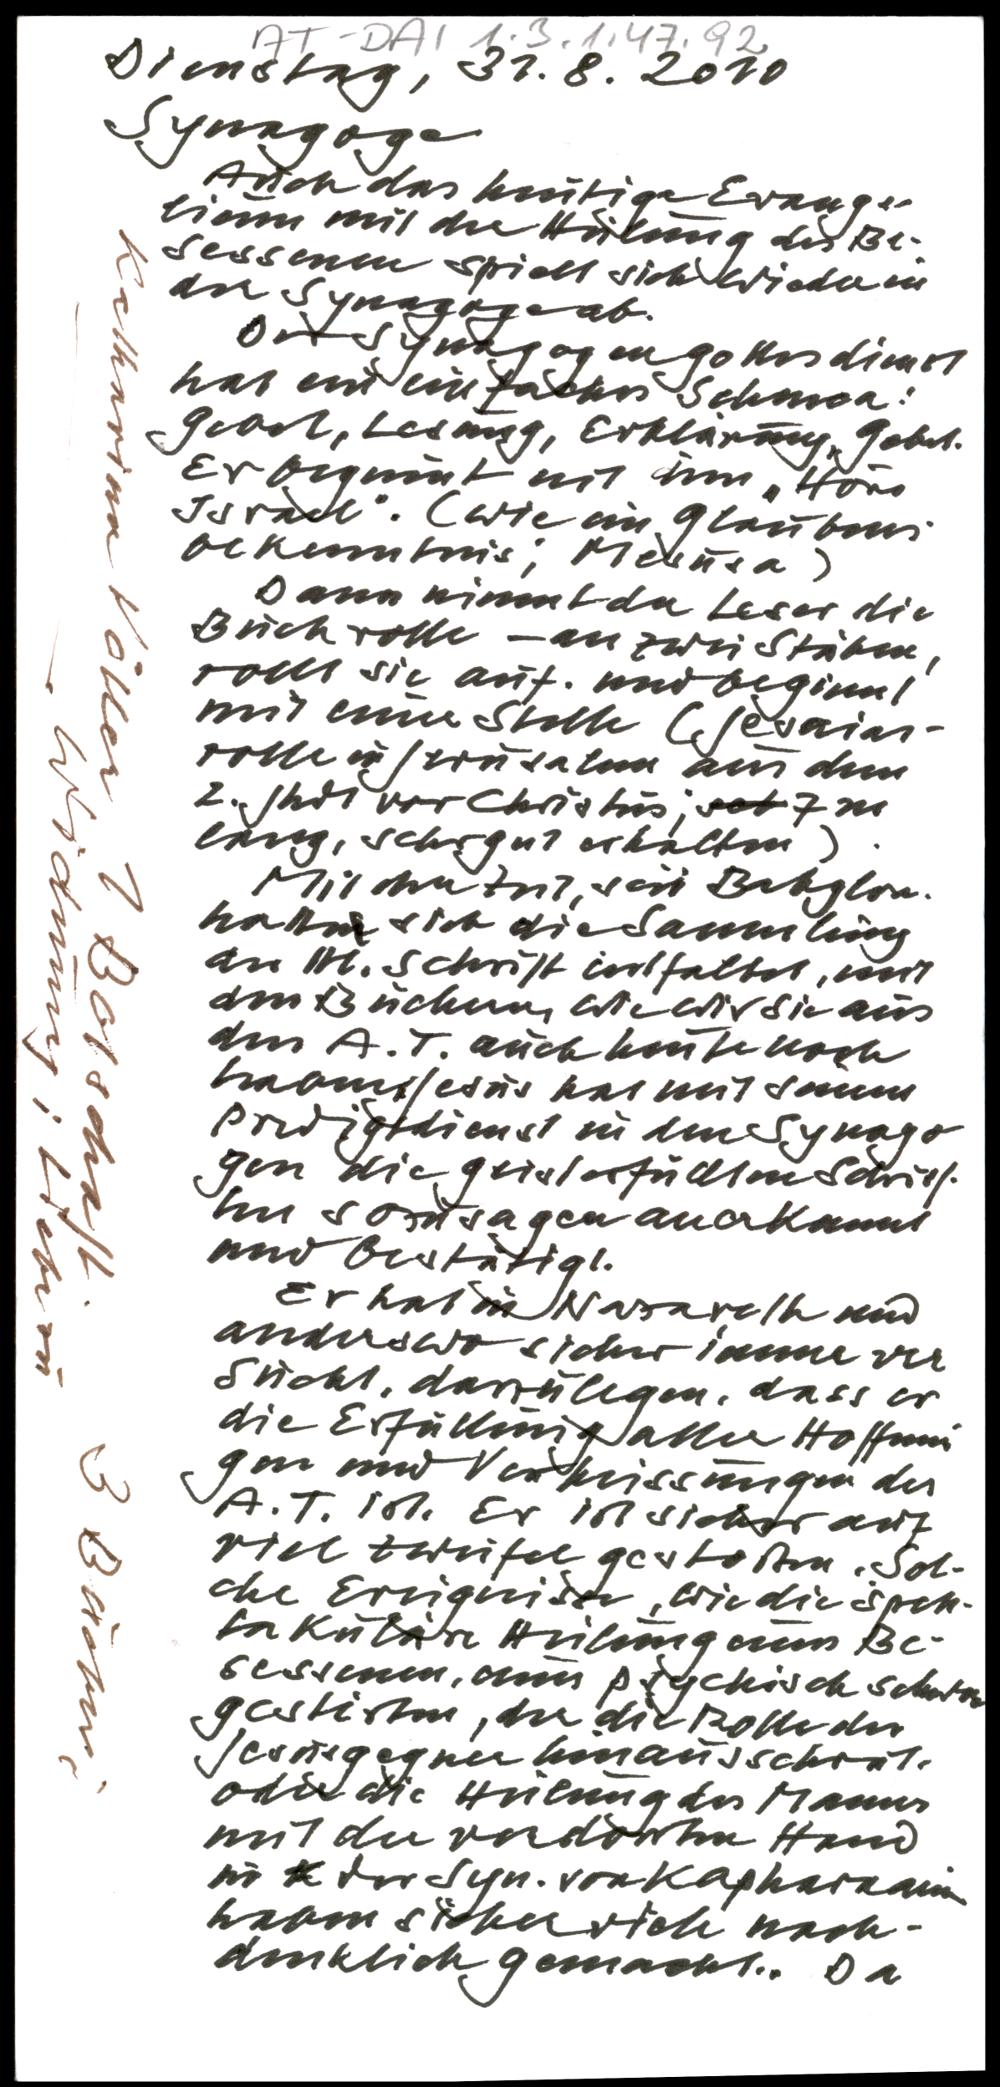 AT-DAI 1.3.1.47.92
Dienstag, 31.8.2010
Synagoge
Auch das heutige Evange-
lium mit der Heilung des Be-
sessenen spielt sich wieder in
der Synagoge ab.
Der Synagogengottesdienst
hat ein einfaches Schema:
Gebet, Lesung, Erklärung, Gebet.
Er beginnt mit dem "Höre
Israel". (wie ein Glaubens
bekenntnis; Mesusa)
Dann nimmt der Leser die
Buchrolle - an zwei Stäben,
rollt sie auf. und beginnt
mit einer Stelle (Jesaias-
rolle in Jerusalem aus dem
2. Jhdt vor Christus; 7 m
lang, sehr gut erhalten).
Mit der Zeit, seit Babylon.
hatte sich die Sammlung
der Hl. Schrift entfaltet, mit
den Büchern, wie wir sie aus
den A.T. auch heute noch
haben. Jesus hat mit seinem
Predigtdienst in den Synago
gen die geisterfüllten Schrif-
ten sozusagen anerkannt
und bestätigt.
Er hat in Nazareth und
anderswo sicher immer ver
sucht, darzulegen, dass er
die Erfüllung aller Hoffnun
gen und Verheissungen des
A.T. ist. Er ist sicher auf
viel Zweifel gestoßen. Sol-
che Ereignisse, wie die spek-
takuläre Heilung eines Be-
sessenen, eines psychisch schwer
gestörten, der die Rolle der
Jesusgegner hinausschreit.
oder die Heilung des Mannes
mit der verdorrten Hand
in der Syn. von Kapharnaum
haben sicher viele nach-
denklich gemacht.. Da
Katharina Völler 1 Botschaft. 3 Bäume;
- Widmung;